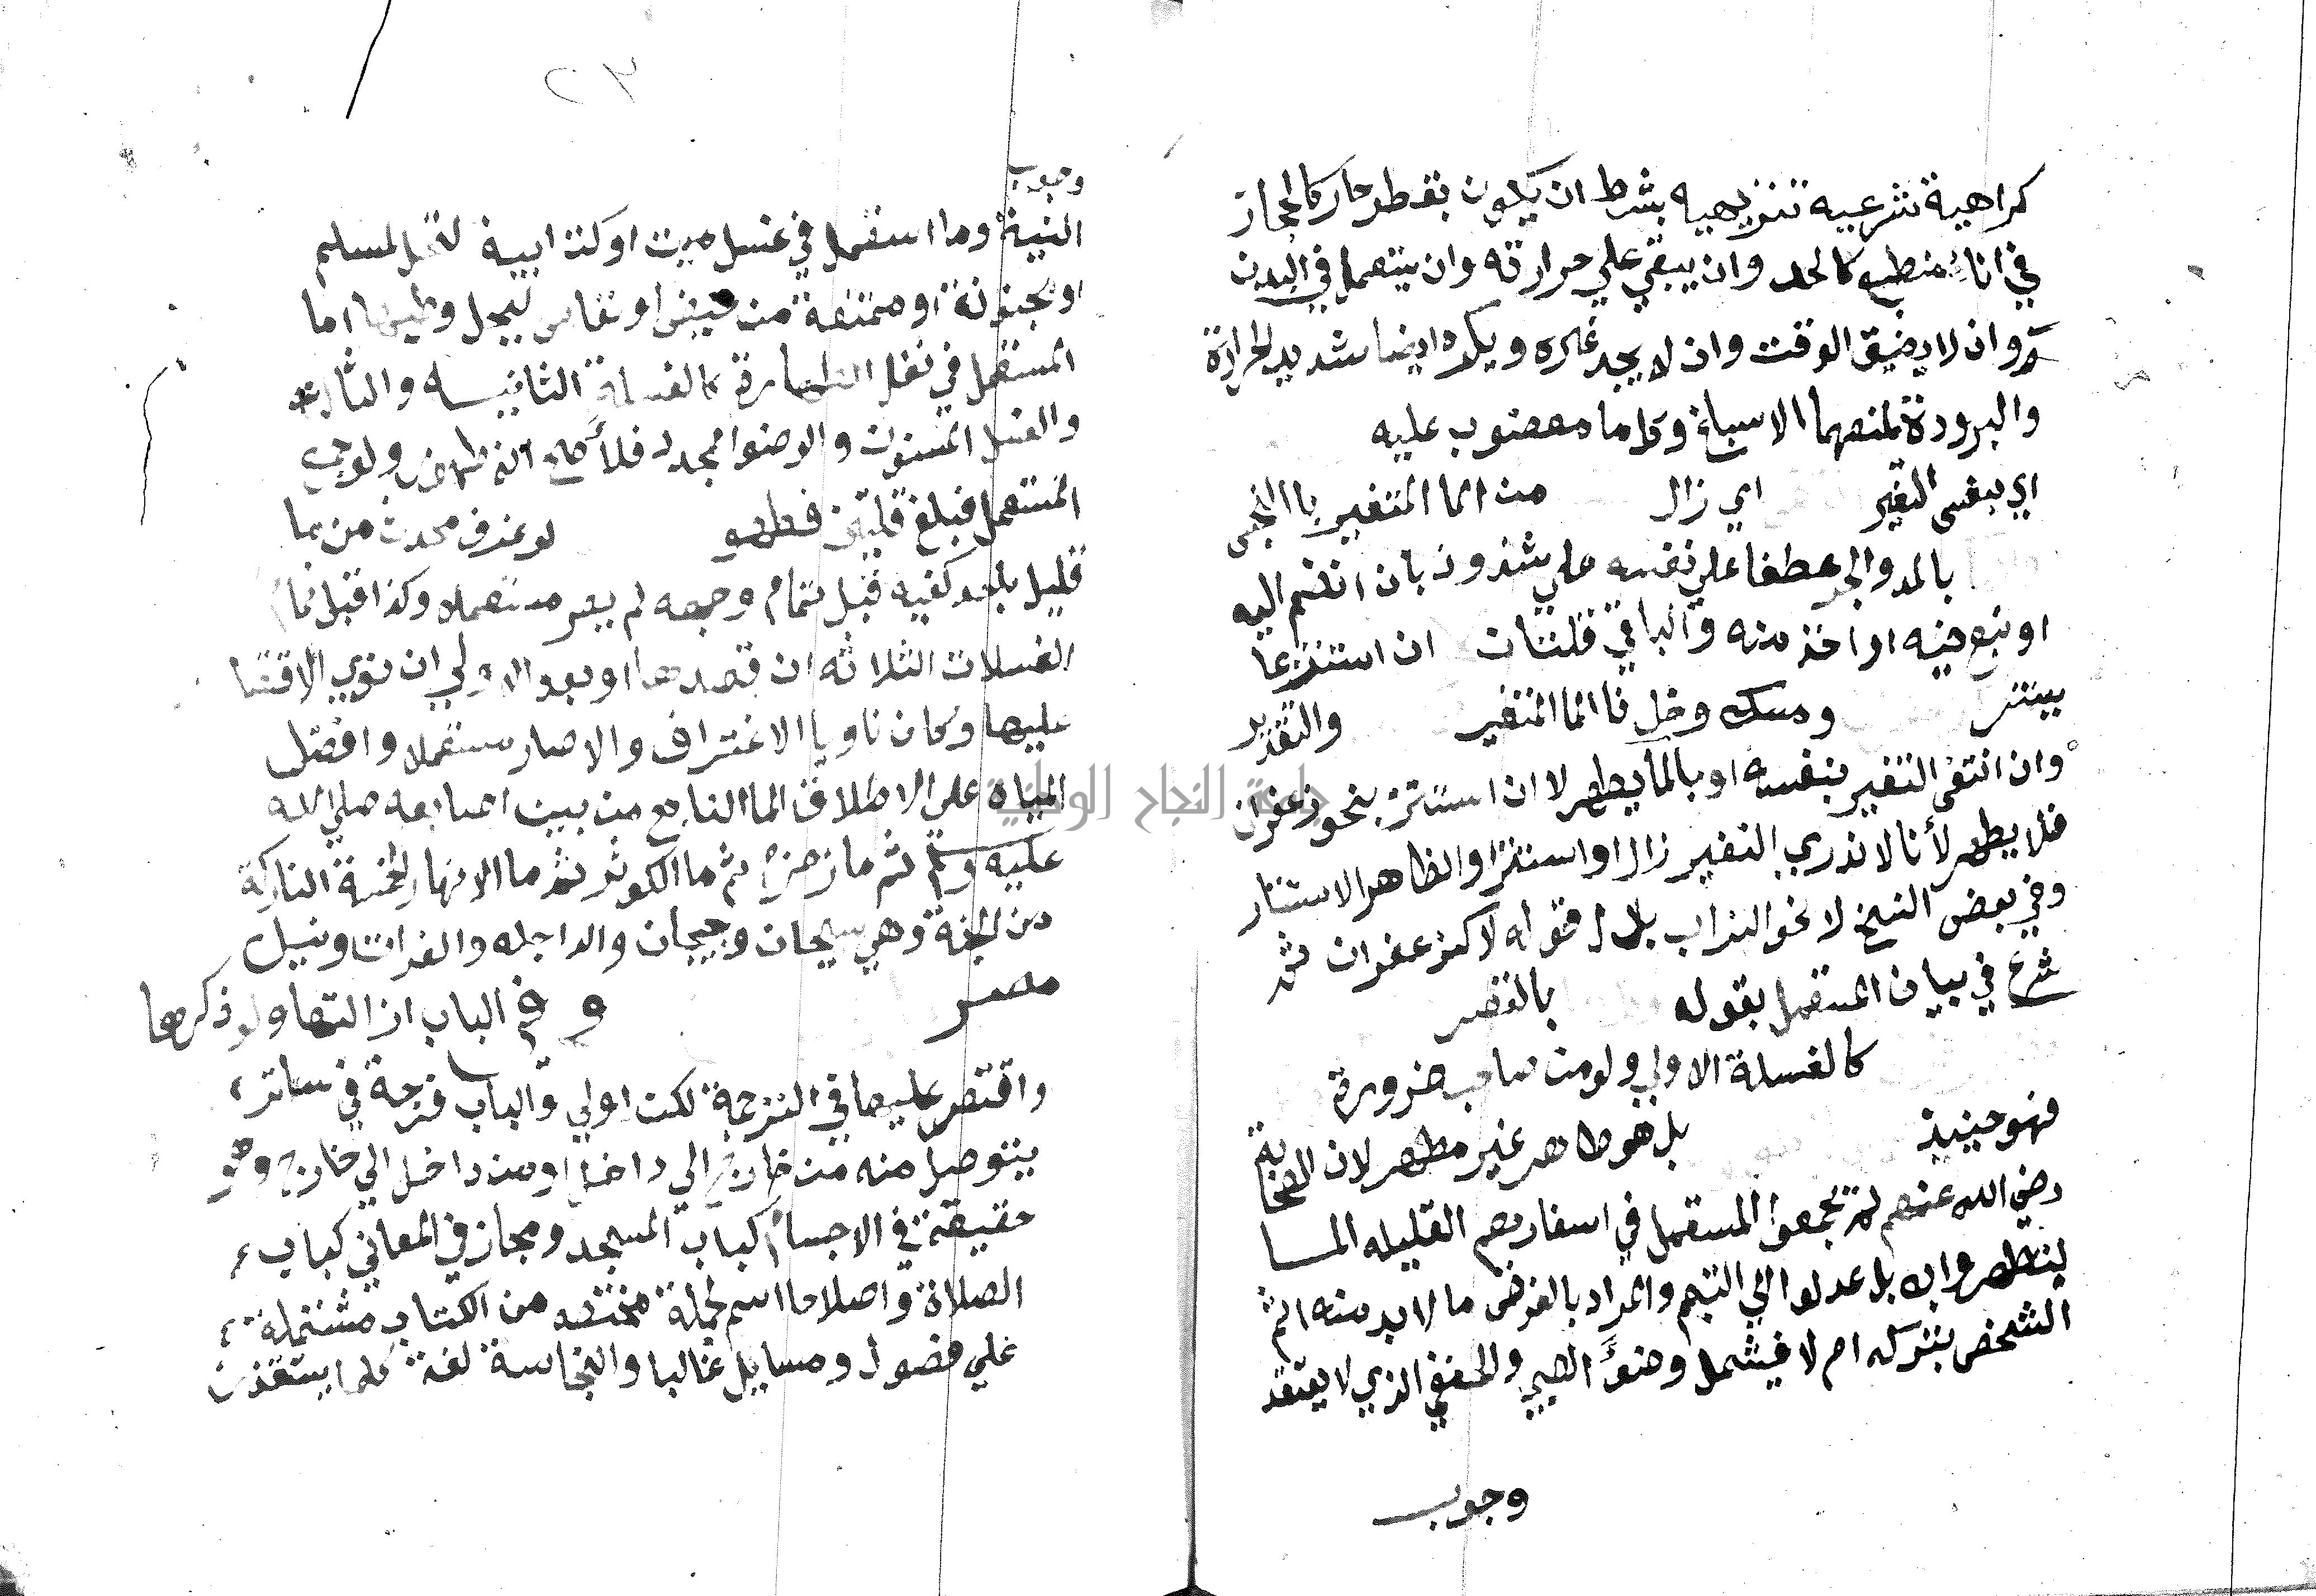 كراهية شرعيه تنزيهيه بشرط ان يكون بقطر حار كالحجاز
في اناء منطبع كالحد وان يبقي علي حرارته وان يستعمل في البدن
وان لا يضيق الوقت وان لا يجد غيره ويكره ايضا شديد الحرارة
والبرودة لمنعهما الاسباغ وكل ما مغضوب عليه
اي بنفس التغير اي زال من الما المتغير بالنجس
بالمد والجر عطفا علي نفسه علي شذوذ بان انضم اليه
او نبع فيه او اخذ منه والباقي قلتان ان استتر عا
بيستتر ومسك وخل فالما المتغير والتقدير
وان انتفي التغير بنفسه او بالما يطهر لا ان استتر بنحو زعفران
فلا يطهر لأنا لا ندري التغير زال او استتر او الظاهر الاستتار
وفي بعض النسخ لا نحو التراب بدل قوله لا كزعفران ثم
شرع في بيان المستعمل بقوله بالقصر
كالغسلة الاولي ولو من صاحب ضرورة
فهو حينيذ بل هو طاهر غير مطهر لان الصحابة
رضي الله عنهم لم يجمعوا المستعمل في اسفارهم القليله الما
ليتطهروا به بل عدلوا الي التيمم والمراد بالفرض ما لا بد منه اثم
الشخص بتركه ام لا فيشمل وضوء الصبي والحنفي الذي لا يعتقد
وجوب
٢٣
وجوب
النية وما استعمل في غسل ميت او كتابية لتحل لمسلم
او مجنونة او ممتنعة من حيض او نفاس ليحل وطيها اما
المستعمل في نفل الطهارة كالغسلة الثانيه والثالثه
والغسل المسنون والوضوا مجدد فلا ولو جمع
المستعمل فبلغ قلتين فطهو لو غرف محدث من ما
قليل باحد كفيه قبل تمام وجهه لم يصر مستعملا وكذا قبل تمام
الغسلات الثلاثه ان قصدها او بعد الاولي ان نوي الاقتصا
عليها وكان ناويا الاغتراف والا صار مستعملا وافضل
المياه علي الاطلاق الما النابع من بين اصابعه صلي الله
عليه وسلم ثم ما زمزم ثم ما الكوثر ثم ما الانهار الخمسة النازلة
من الجنة وهي سيحان وجيحان والداجله والفرات ونيل
مصر و في الباب ازالتها ولو ذكرها
واقتصر عليها في الترجمة لكن اولي والباب فرجة في ساتر
يتوصل منه من خارج الي داخل او من داخل الي خارج وهو
حقيقة في الاجسام كباب المسجد ومجاز في المعاني كباب
الصلاة واصلاحا اسم لجملة مختصه من الكتاب مشتملة
علي فصول ومسايل غالبا والنجاسة لغة كلما يستقذر
جامعة النجاح الوطنية